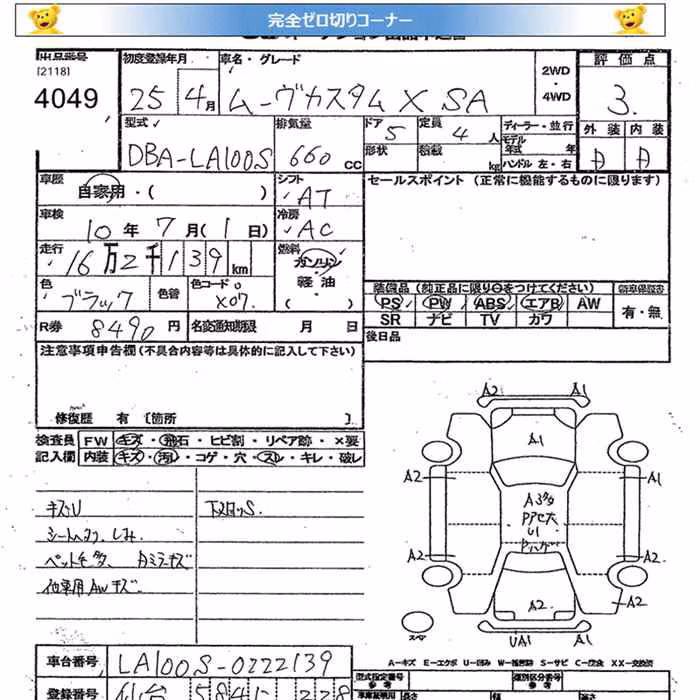 完全ゼロ切りコーナー
出品番号
[2118]
4049
初度登録年月
25 4月
車名・グレード
ムーヴカスタム X SA
2WD
・
4WD
評価点
3.
外装 内装
型式
DBA-LA100S
排気量
660 cc
ドア 5
形状
定員 4 人
積載 kg
ディーラー・並行
モデル年式 年式
ハンドル 左・右
車歴
自家用・( )
シフト
AT
セールスポイント (正常に機能するものに限ります)
車検
10年 7月( 1日)
冷房
AC
走行
16万2千139km
燃料
ガソリン
・
軽油
( )
色
ブラック
色替
色コード
X07.
装備品 (純正品に限り○をつけてください)
PS PW ABS エアB AW
SR ナビ TV カワ
新車保証書
有・無
R券 8490円
名変通知期限 月 日
後日品
注意事項申告欄(不具合内容等は具体的に記入して下さい)
修復歴 有 [箇所 ]
検査員
記入欄
FW キズ・飛石・ヒビ割・リペア跡・×要
内装 キズ・汚レ・コゲ・穴・スレ・キレ・破レ
キズU
下廻りS.
シートヘタリ、しみ
ペット毛多
他車用AWキズ
A2 A1
A1
A2 A1
A3多
Pアセ大
U1
A2 A2
A2 A2
UA1 A1
スペア
A-キズ E-エクボ U-凹み W-補修跡 S-サビ C-腐食 XX-交換済
車台番号 LA100S-0222139
登録番号 仙台 584
型式指定番号
類別区分番号
参考